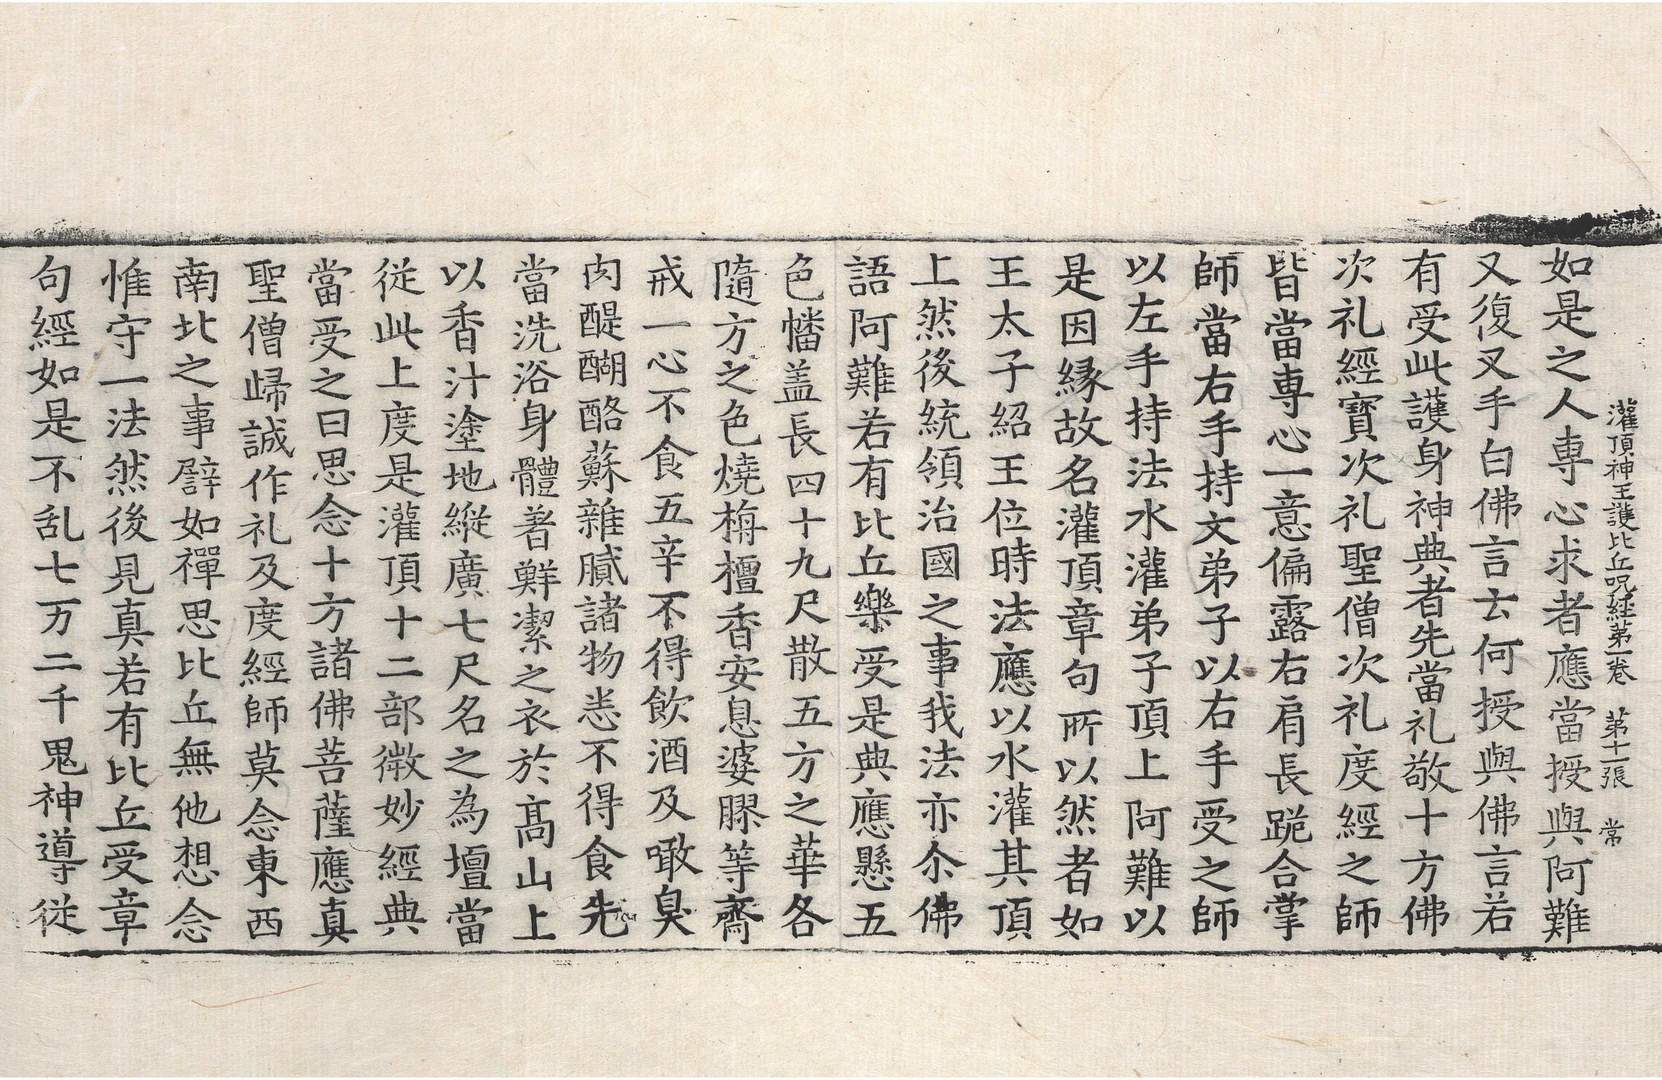 灌頂神王護比丘呪經第一卷　第十一張　常
如是之人専心求者應當授與阿難
又復叉手白佛言云何授與佛言若
有受此護身神典者先當礼敬十方佛
次礼經寶次礼聖僧次礼度經之師
皆當専心一意偏露右肩長跪合掌
師當右手持文弟子以右手受之師
以左手持法水灌弟子頂上阿難以
是因縁故名灌頂章句所以然者如
王太子紹王位時法應以水灌其頂
上然後統領治國之事我法亦尒佛
語阿難若有比丘樂受是典應懸五
色幡盖長四十九尺散五方之華各
隨方之色燒栴檀香安息婆膠等齋
戒一心不食五辛不得飲酒及噉臭
肉醍醐酪蘇雜膩諸物悉不得食先
當洗浴身體著鮮潔之衣於髙山上
以香汁塗地縱廣七尺名之為壇當
從此上度是灌頂十二部微妙經典
當受之日思念十方諸佛菩薩應真
聖僧歸誠作礼及度經師莫念東西
南北之事譬如禪思比丘無他想念
惟守一法然後見真若有比丘受章
句經如是不乱七万二千鬼神導從